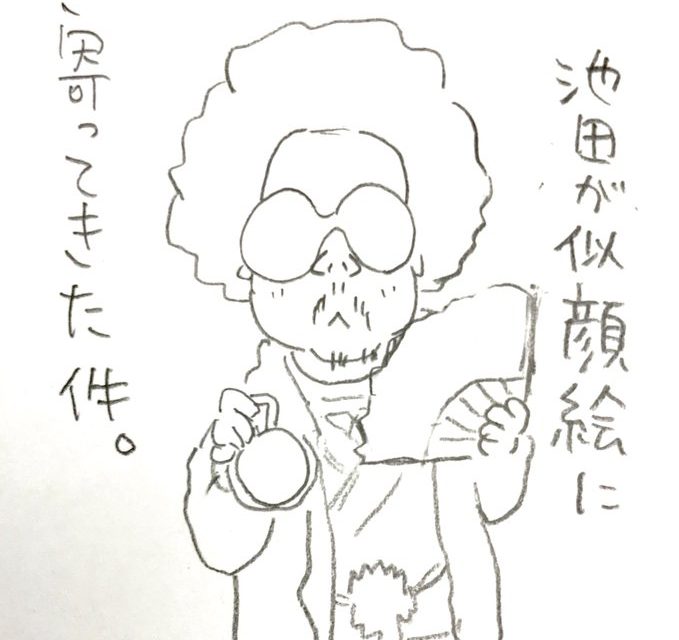 池田が似顔絵に
寄ってきた件。